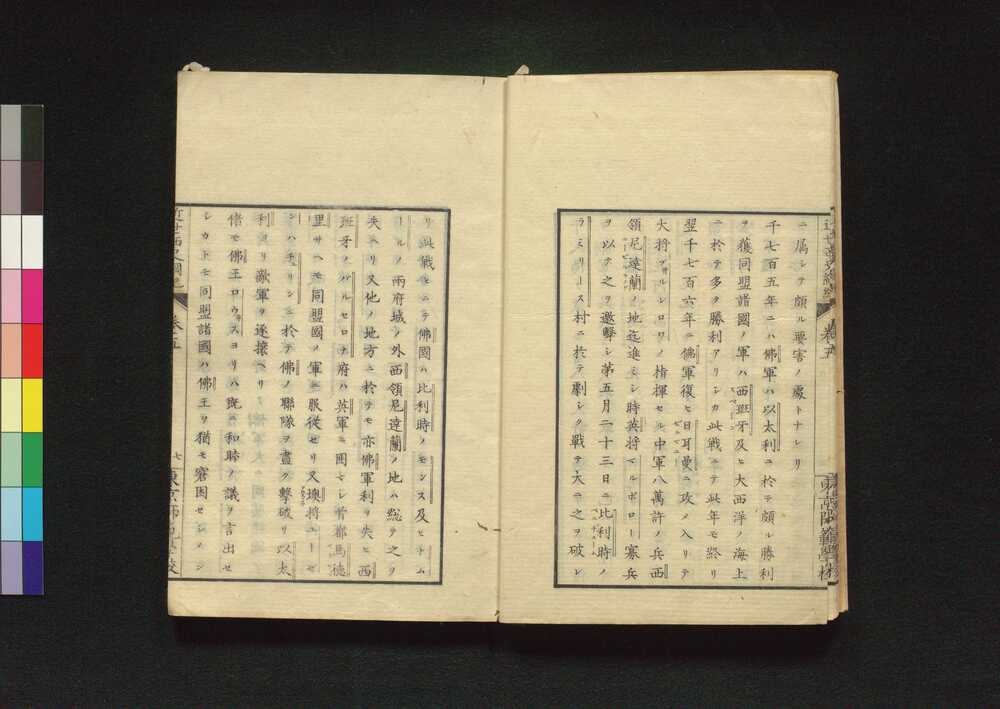 ニ屬シテ頗ル要害ノ處トナレリ
千七百五年ニハ佛軍ハ以太利ニ於テ頗ル勝利
ヲ獲同盟諸國ノ軍ハ西班牙及ヒ大西洋ノ海上
ニ於テ多ク勝利アリシカ此戰ニテ此年モ終リ
翌千七百六年ニ佛軍復ヒ日耳曼ニ攻メ入リテ
大將ブルシロワノ指揮セル中軍八萬許ノ兵西
領尼達蘭ノ地迄進ミシ時英將マルボロー寡兵
ヲ以テ之ヲ邀擊シ第五月二十三日ニ比利時ノ
ラミリース村ニ於テ劇シク戰テ大ニ之ヲ破レ
リ此戰ヒニテ佛國ハ比利時ノモンス及ヒトム
ールノ兩府城ノ外西領尼達蘭ノ地ハ總テ之ヲ
失ヘリ又他ノ地方ニ於テモ亦佛軍利ヲ失ヒ西
班牙ノバルセロナ府ハ英軍ニ圍マレ首都馬德
里サヘモ同盟國ノ軍ニ服從セリ又墺將ユーセ
ンハチリンニ於テ佛ノ聯隊ヲ盡ク擊破リ以太
利ヨリ敵軍ヲ逐攘ヘリ
偖モ佛王ロウヰスヨリハ旣ニ和睦ノ議ヲ言出セ
シカトモ同盟諸國ハ佛王ヲ猶モ窘困セシメン
近世西史綱紀
卷五
七
東京師範學校